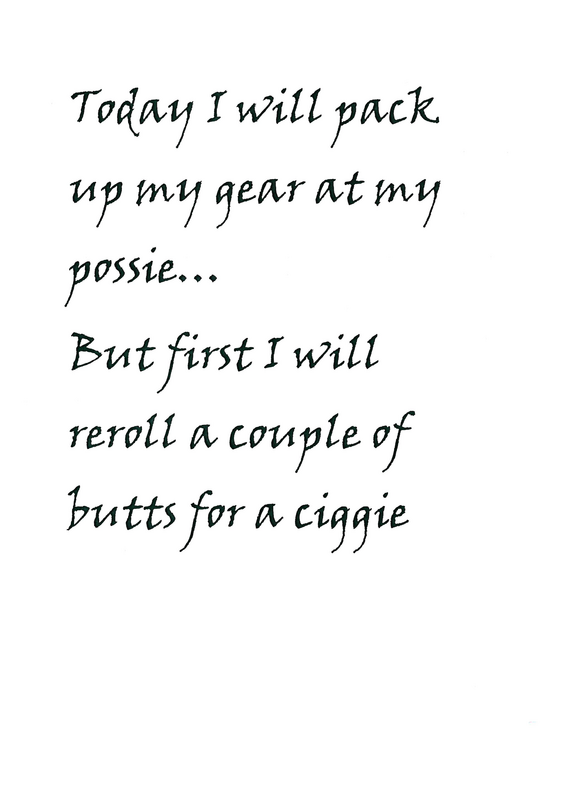 Today I will pack
up my gear at my
possie...
But first I will
reroll a couple of
butts for a ciggie